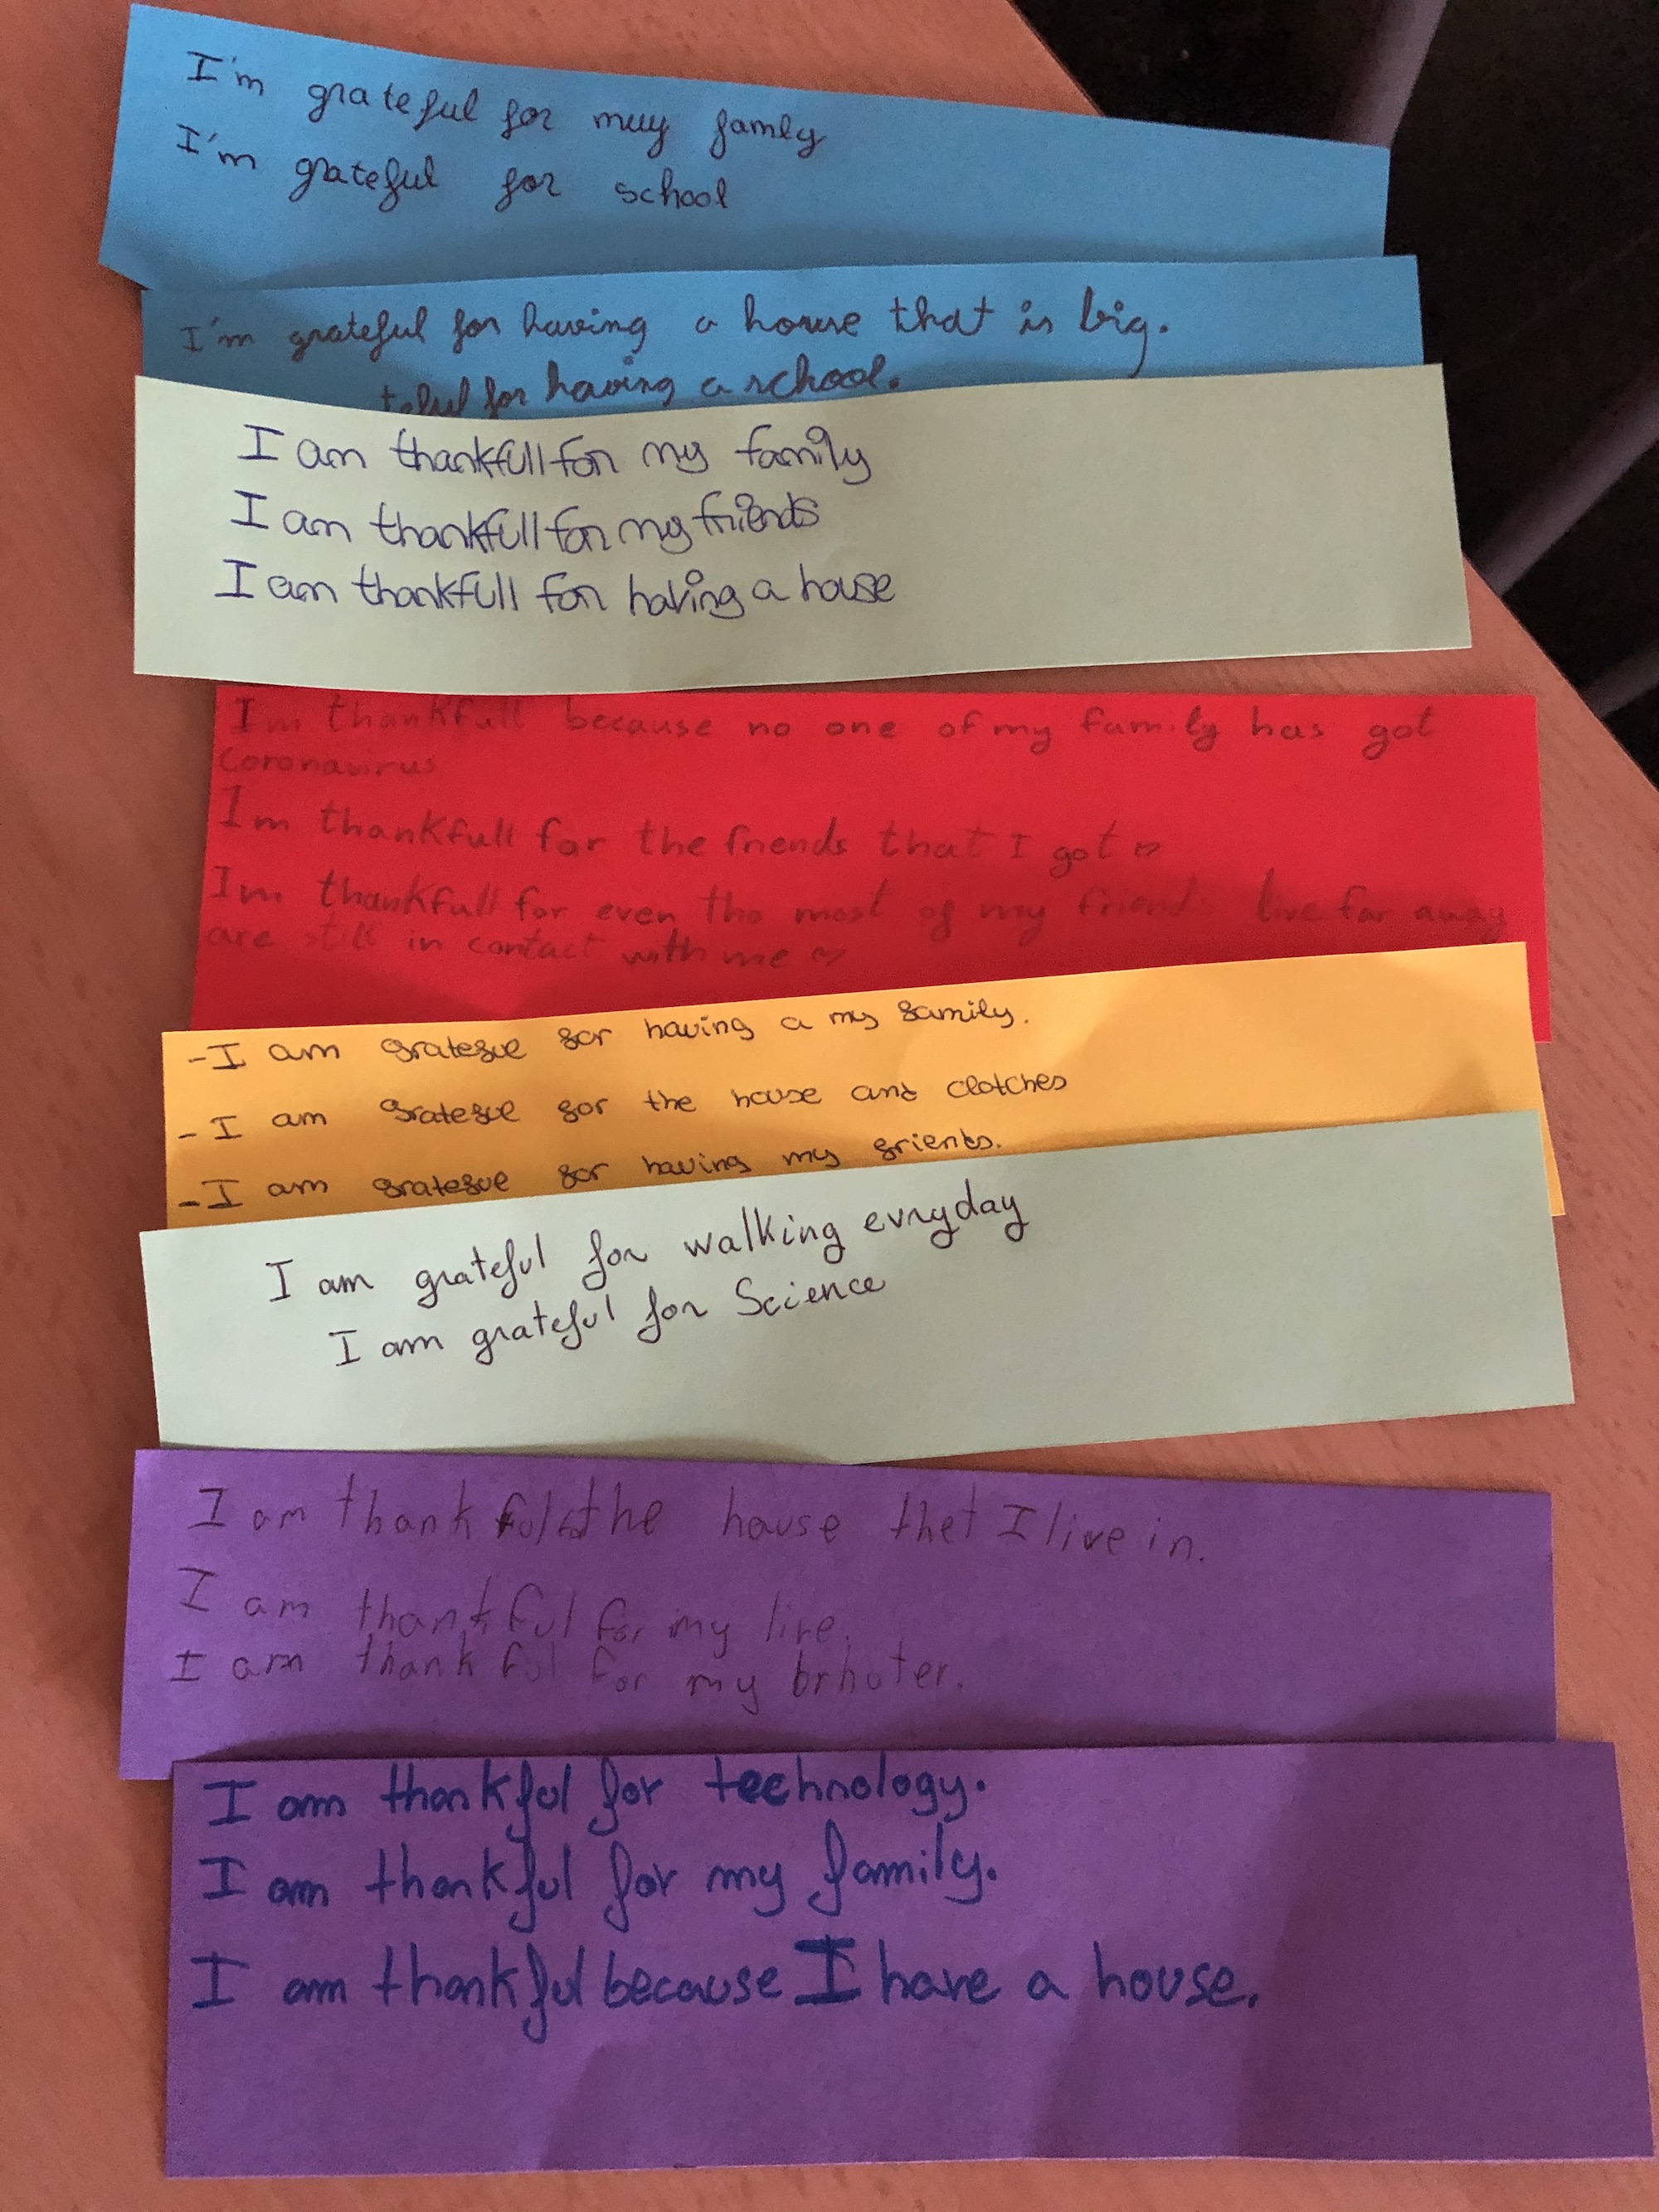 I'm grateful for muy famly
I'm grateful for school
I'm grateful for having a house that is big.
teful for having a school.
I am thankfull for my family
I am thankfull for my friends
I am thankfull for having a house
Im thankfull because no one of my family has got
coronavirus
Im thankfull for the friends that I got
Im thankfull for even tho most of my friends live far away
are still in contact with me
-I am gratefue for having a my family.
-I am gratefue for the house and clotches
-I am gratefue for having my frients.
I am grateful for walking evryday
I am grateful for Science
I am thankful the house thet I live in.
I am thankful for my live.
I am thankful for my brhoter.
I am thankful for technology.
I am thankful for my family.
I am thankful because I have a house.